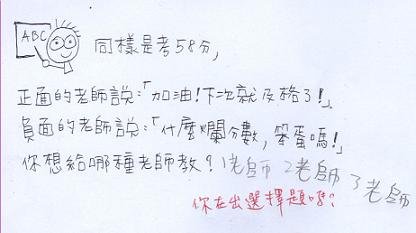 ABC
同樣是考58分,
正面的老師說:「加油!下次就及格了!」
負面的老師說:「什麼爛分數,笨蛋嗎!」
你想給哪種老師教?1老師 2老師 3老師
你在出選擇題嗎?